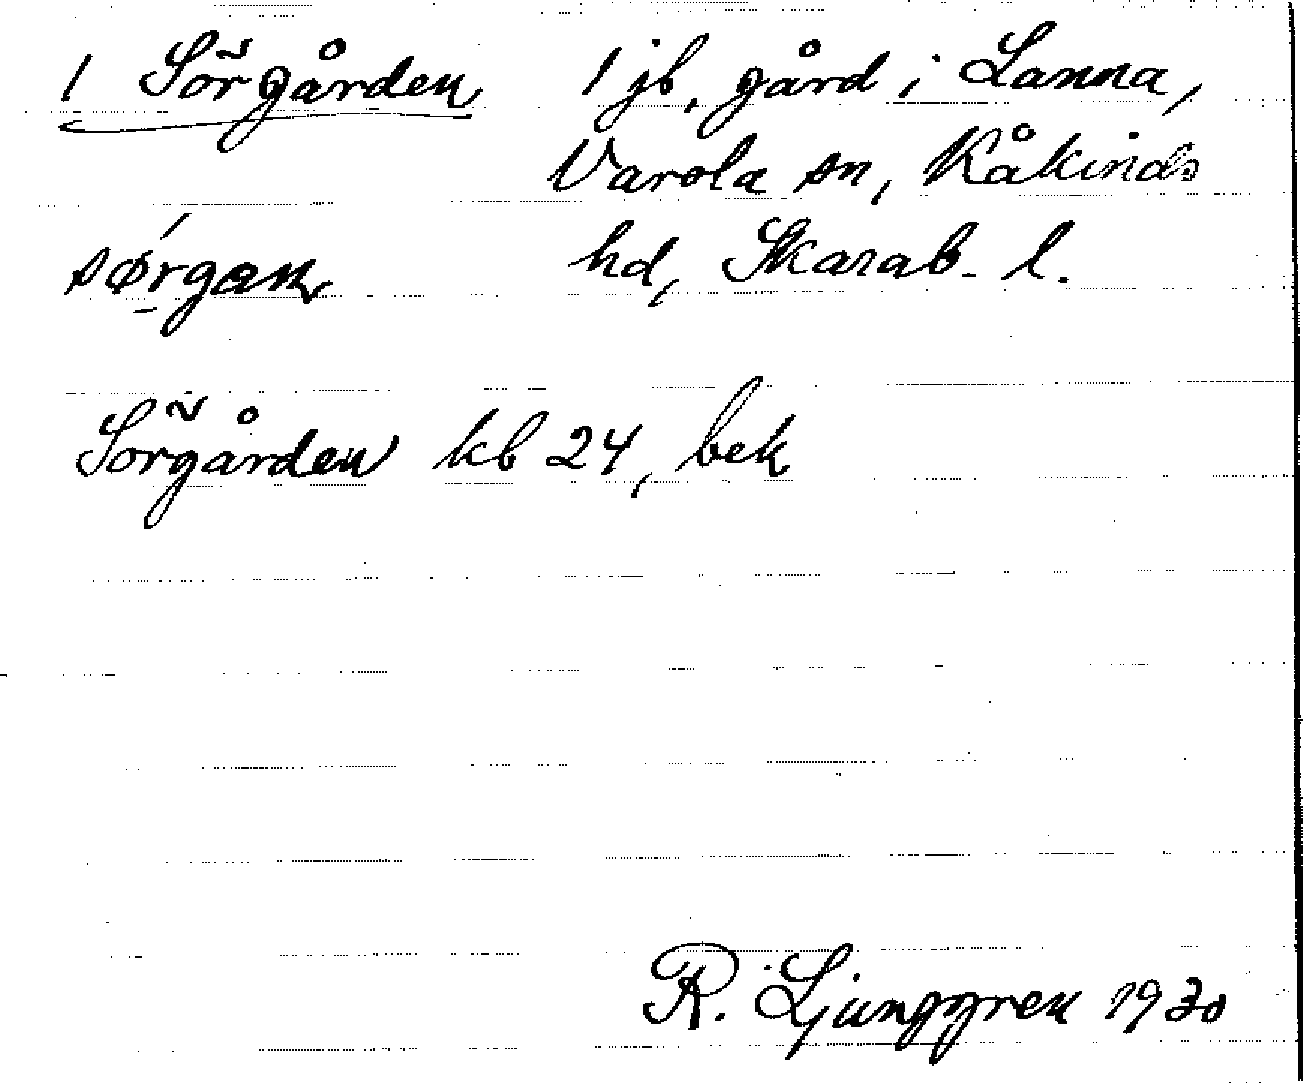 1 Sörgården 1 jb, gård i Lanna,
Varola sn, Kåkinds
sǿ̱rgan hd, Skarab. l.
Sörgården kb 24, bek
R. Ljunggren 1930